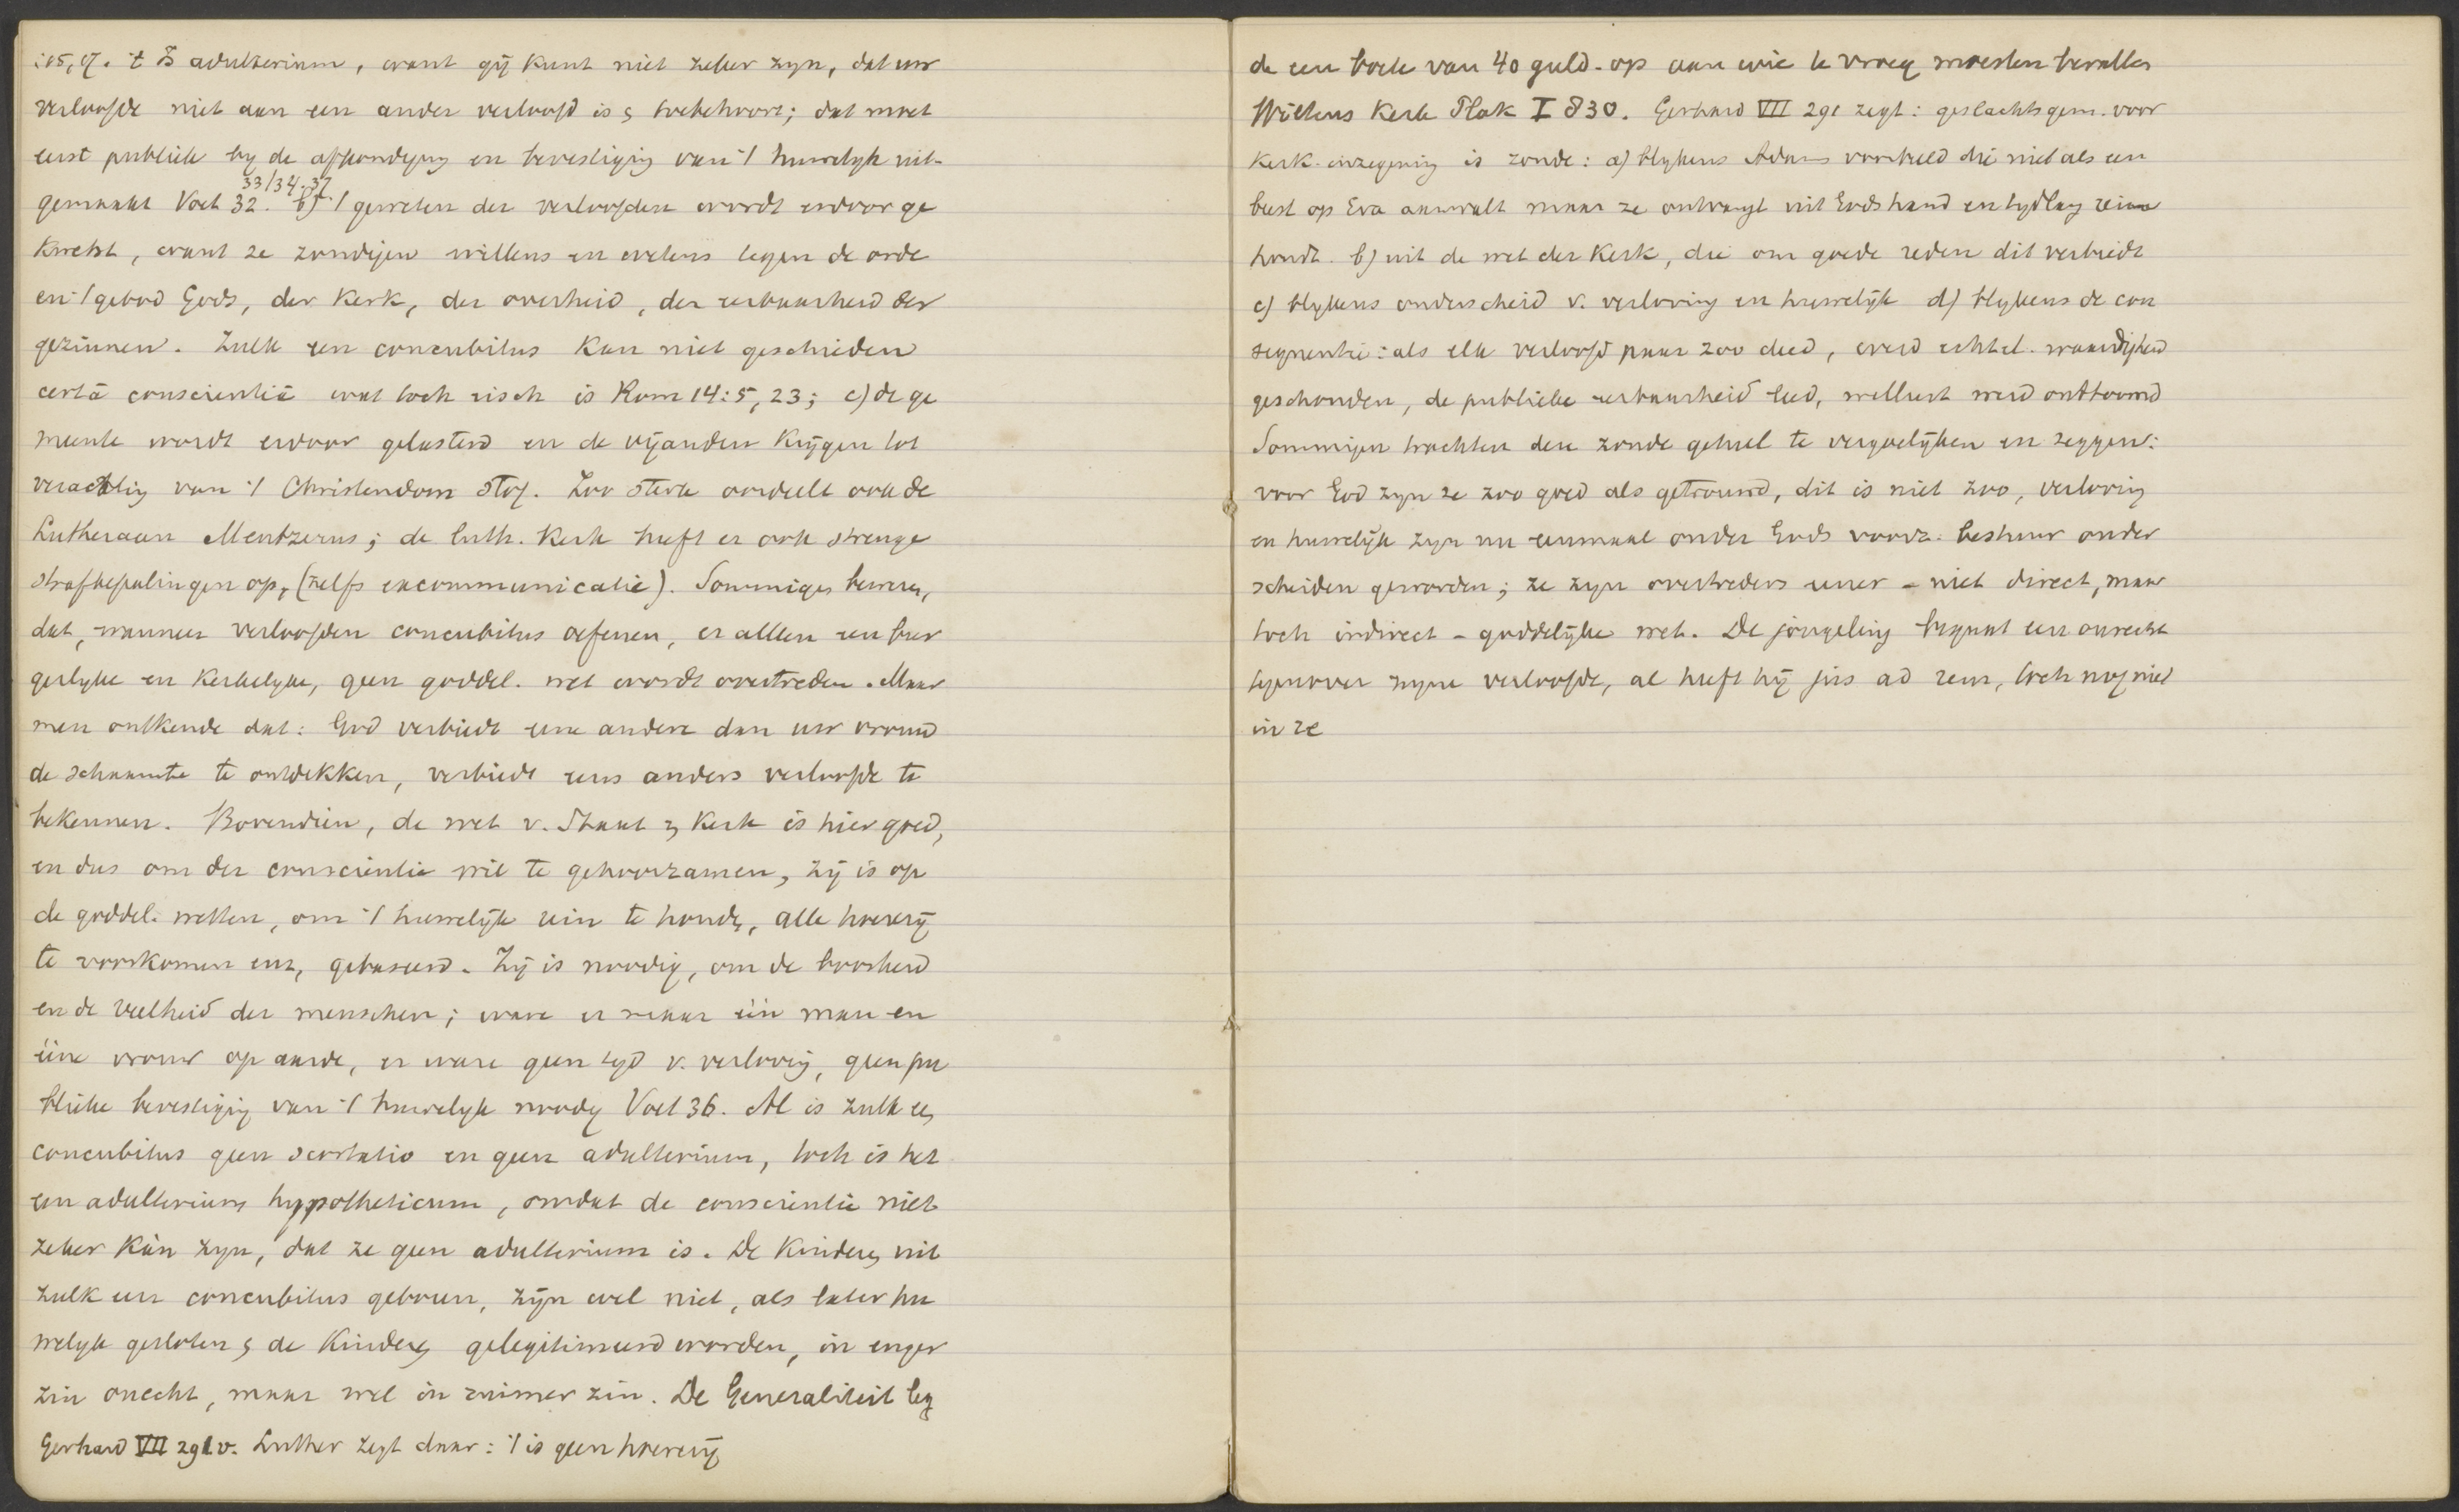 :15, 17. 't Is adulterium, want gij kunt niet zeker zyn, dat uw
verloofde niet aan een ander verloofd is & toebehoort; dat moet
eerst publiek by de afkondiging en bevestiging van 't huwelyk uit-
33/34. 37
gemaakt Voet 32. b) 't geweten der verloofden wordt erdoor ge
kwetst, want ze zondigen willens en wetens tegen de orde
en 't gebod Gods, der Kerk, der overheid, der eerbaarheid der
gezinnen. Zulk een concubitus kan niet geschieden
certâ conscientiâ wat toch eisch is Rom 14:5, 23; c) de ge
meente wordt erdoor gelasterd en de vijanden krijgen tot
verachting van 't Christendom stof. Zoo sterk oordeelt ook de
Lutheraan Mentzerus; de luth. Kerk heeft er ook strenge
strafbepalingen op, (zelfs excommunicatie). Sommigen beweren,
dat, wanneer verloofden concubitus oefenen, er alleen een bur
gerlyke en Kerkelyke, geen goddel. wet wordt overtreden. Maar
men ontkende dat: God verbiedt eene andere dan uw vrouw
de schaamte te ontdekken, verbiedt eens anders verloofde te
bekennen. Bovendien, de wet v. Staat & Kerk is hier goed,
en dus om der conscientie wil te gehoorzamen, zij is op
de goddel. wetten, om 't huwelijk rein te houden, alle hoererij
te voorkomen enz, gebaseerd. Zij is noodig, om de boosheid
en de veelheid der menschen; ware er maar één man en
ééne vrouw op aarde, er ware geen tyd v. verloving, geen pu
blieke bevestiging van 't huwelyk noodig Voet 36. Al is zulk een
concubitus geen scortatio en geen adulterium, toch is het
een adulterium hypotheticum, omdat de conscientie niet
zeker kàn zyn, dat ze geen adulterium is. De kinderen uit
zulk een concubitus geboren, zijn wel niet, als later hu
welyk gesloten & de kinderen gelegitimeerd worden, in enger
zin onecht, maar wel in ruimer zin. De Generaliteit leg
Gerhard VII 291 v. Luther zegt daar: 't is geen hoererij
de een boete van 40 guld. op aan wie te vroeg moesten bevallen
Wiltens Kerk Plak I 830. Gerhard VII 291 zegt: geslachtsgem. voor
Kerk. inzegening is zonde: a) blykens Adams voorbeeld die niet als een
beest op Eva aanvalt maar ze ontvangt uit Gods hand en tydlang rein
houdt. b) uit de wet der Kerk, die om goede reden dit verbiedt
c) blykens onderscheid v. verloving en huwelijk d) blykens de con
sequentie: als elk verloofd paar zoo deed, werd echtel. waardigheid
geschonden, de publieke eerbaarheid leed, wellust werd ontboomd
Sommigen trachten deze zonde geheel te vergoelijken en zeggen:
voor God zyn ze zoo goed als getrouwd, dit is niet zoo, verloving
en huwelijk zyn nu eenmaal onder Gods voorz. bestuur onder
scheiden geworden; ze zyn overtreders eener - niet direct, maar
toch indirect - goddelijke wet. De jongeling begaat een onrecht
tegenover zyne verloofde, al heeft hij jus ad rem, toch nog niet
in re